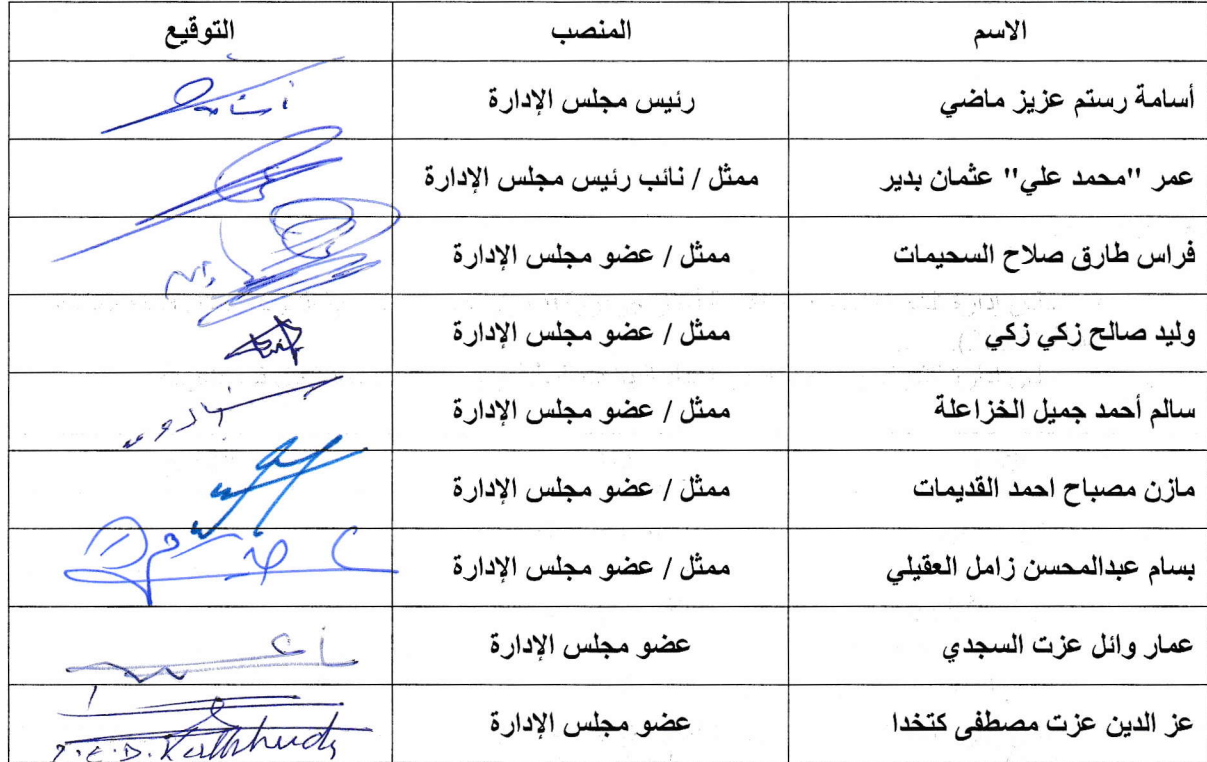 الاسم المنصب التوقيع
أسامة رستم عزيز ماضي رئيس مجلس الإدارة
عمر "محمد علي" عثمان بدير ممثل / نائب رئيس مجلس الإدارة
فراس طارق صلاح السحيمات ممثل / عضو مجلس الإدارة
وليد صالح زكي زكي ممثل / عضو مجلس الإدارة
سالم أحمد جميل الخزاعلة ممثل / عضو مجلس الإدارة
مازن مصباح احمد القديمات ممثل / عضو مجلس الإدارة
بسام عبدالمحسن زامل العقيلي ممثل / عضو مجلس الإدارة
عمار وائل عزت السجدي عضو مجلس الإدارة
عز الدين عزت مصطفى كتخدا عضو مجلس الإدارة